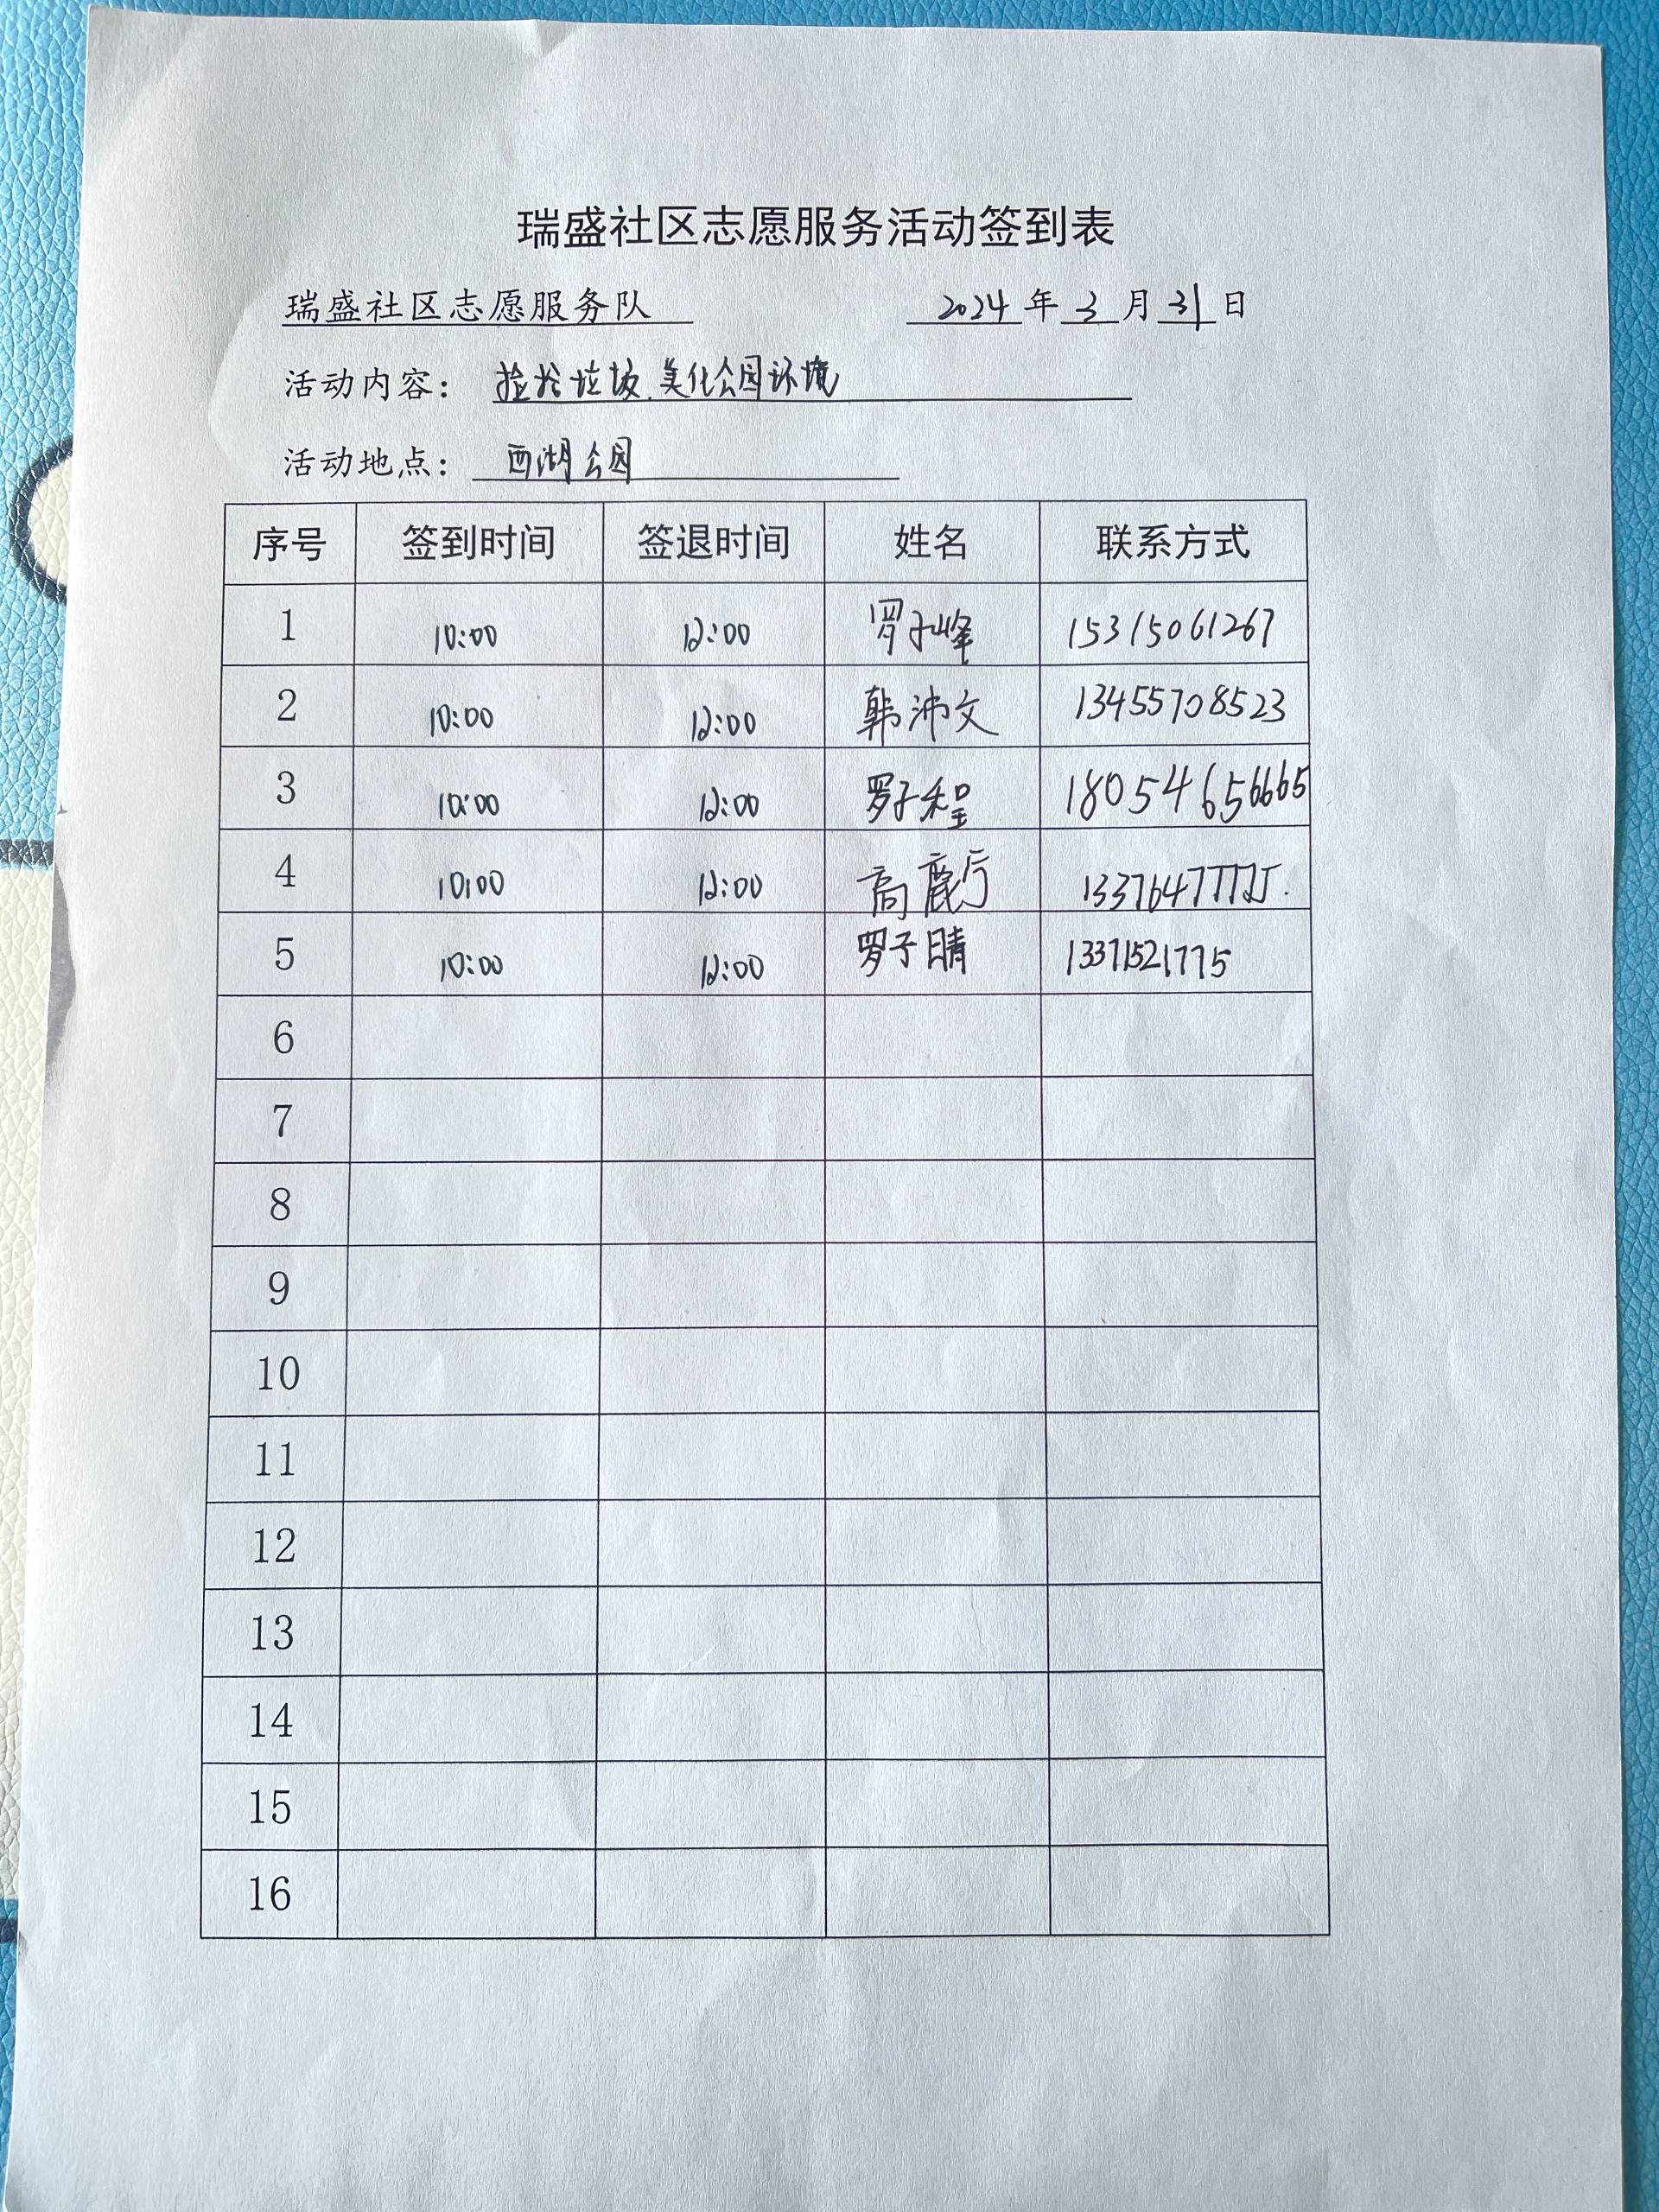 瑞盛社区志愿服务活动签到表
瑞盛社区志愿服务队 2024年3月31日
活动内容: 捡拾垃圾.美化公园环境
活动地点: 西湖公园
序号 签到时间 签退时间 姓名 联系方式
1 10:00 12:00 罗子峰 15315061267
2 10:00 12:00 韩沛文 13455708523
3 10:00 12:00 罗子程 18054656665
4 10:00 12:00 高
5 10:00 12:00 罗子晴 13371521775
6
7
8
9
10
11
12
13
14
15
16